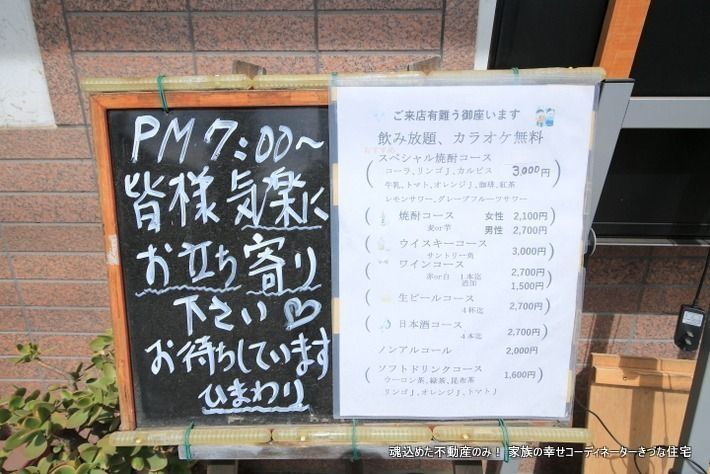 PM 7:00〜
皆様気楽に
お立ち寄り
下さい♡
お待ちしています
ひまわり
ご来店有難う御座います
飲み放題、カラオケ無料
おすすめ
スペシャル焼酎コース
コーラ、リンゴJ、カルピス 3,000円
牛乳、トマト、オレンジJ、珈琲、紅茶
レモンサワー、グレープフルーツサワー
焼酎コース 女性 2,100円
麦or芋 男性 2,700円
ウイスキーコース
サントリー角 3,000円
ワインコース 2,700円
赤or白 1本迄
追加 1,500円
生ビールコース
4杯迄 2,700円
日本酒コース
4本迄 2,700円
ノンアルコール 2,000円
ソフトドリンクコース 1,600円
ウーロン茶、緑茶、昆布茶
リンゴJ、オレンジJ、トマトJ
魂込めた不動産のみ! 家族の幸せコーディネーターきづな住宅